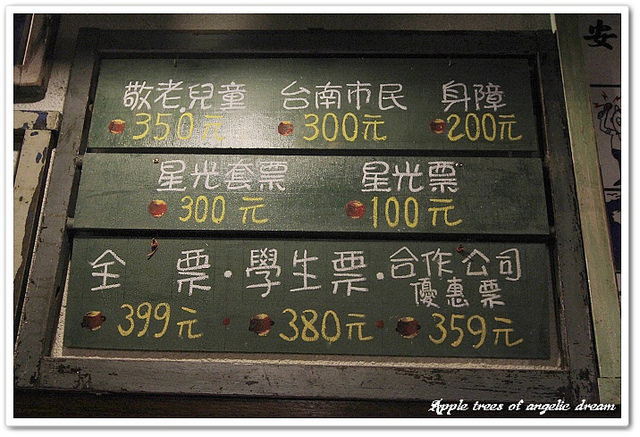 敬老.兒童 台南市民 身障
350元 300元 200元
星光套票 星光票
300元 100元
全票·學生票·合作公司
優惠票
399元 380元 359元
安
Apple trees of angelic dream